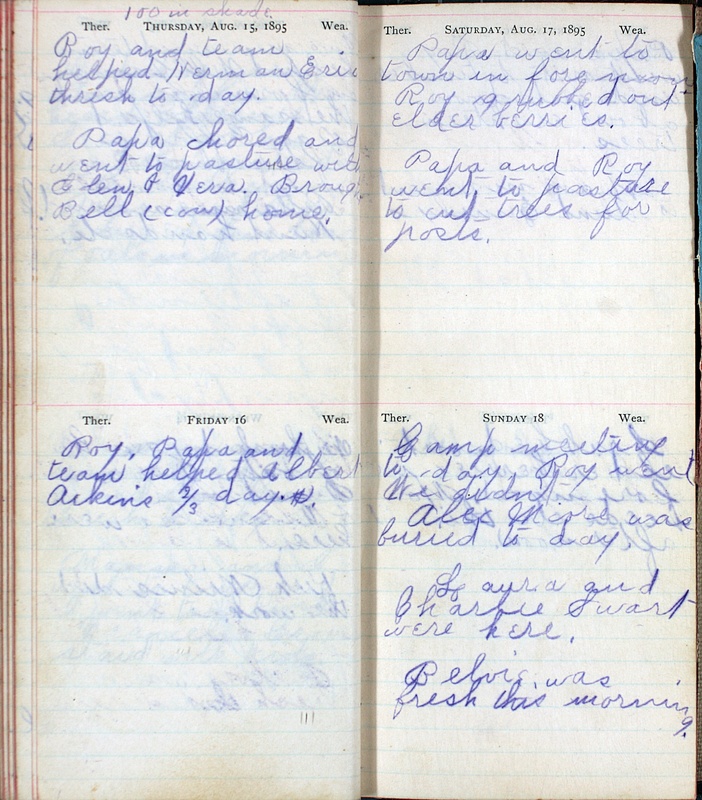 100 in shade.
Ther. THURSDAY, AUG. 15, 1895 Wea.
Roy and team
helped Herman
thresh to day.
Papa chored and
went to pasture with
Glen & Vera. Broug
Bell (cow) home.
Ther. FRIDAY 16 Wea.
Roy, Papa and
team helped Albert
Arkins 2/3 day.
Ther. SATURDAY, AUG. 17, 1895 Wea.
Papa went to
town in fore noon
Roy grubbed out
elder berries.
Papa and Roy
went to pasture
to cut trees for
posts.
Ther. SUNDAY 18 Wea.
Camp meeting
to day. Roy went
We didn't
Alex Moore was
buried to day
Laura and
Charlie Swart
were here.
was
fresh this morning.